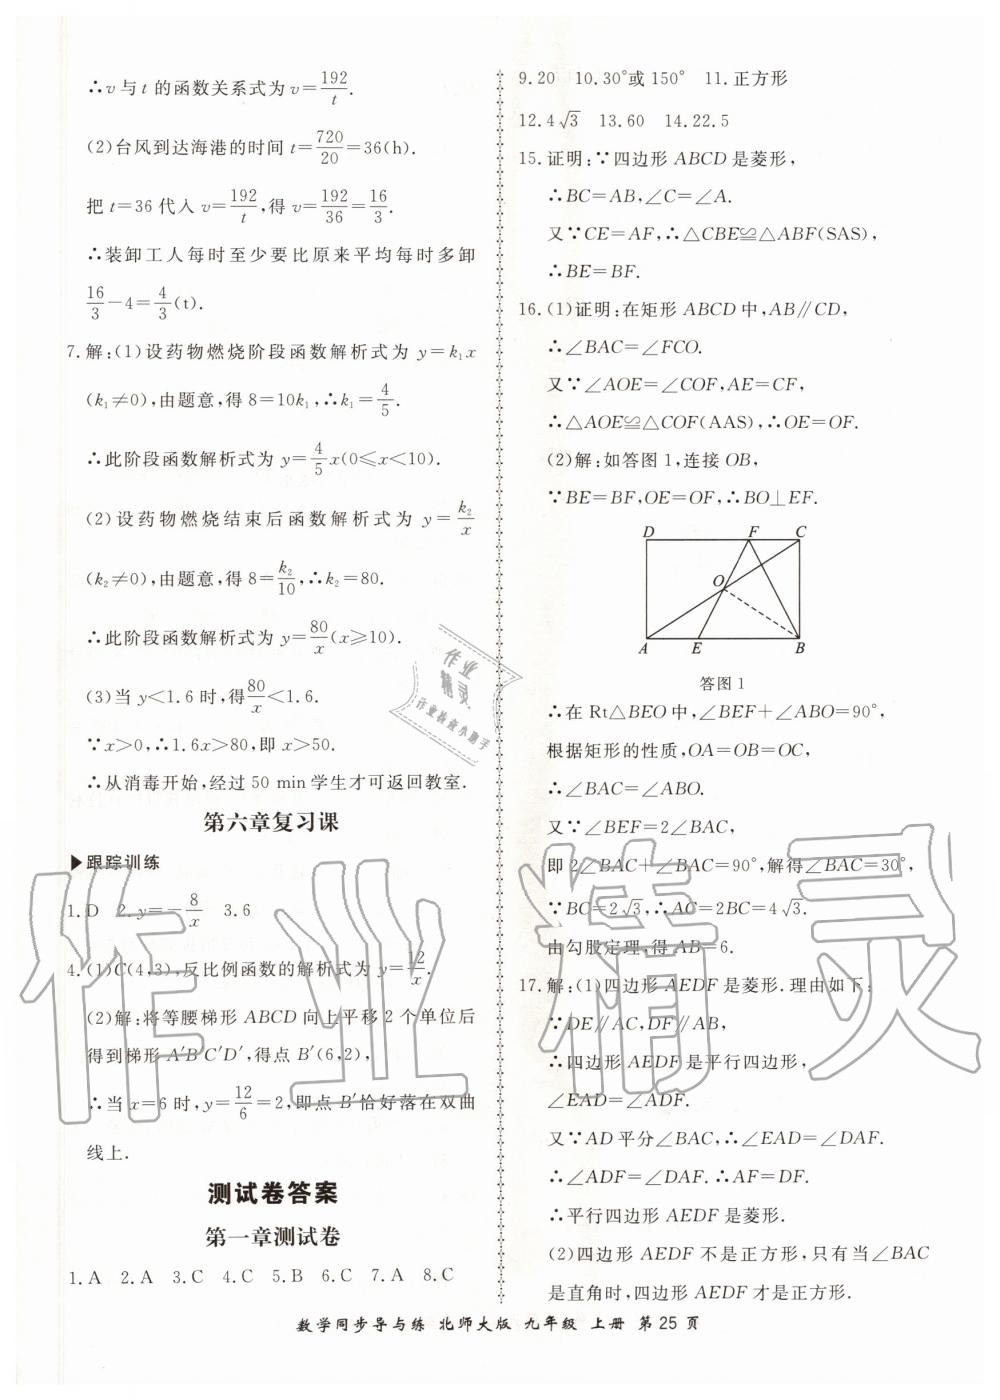 ∴v与t的函数关系式为v=192/t.
(2)台风到达海港的时间t=720/20=36(h).
把t=36代入v=192/t,得v=192/36=16/3.
∴装卸工人每时至少要比原来平均每时多卸
16/3-4=4/3(t).
7.解:(1)设药物燃烧阶段函数解析式为y=k₁x
(k₁≠0),由题意,得8=10k₁,∴k₁=4/5.
∴此阶段函数解析式为y=4/5x(0≤x<10).
(2)设药物燃烧结束后函数解析式为y=k₂/x
(k₂≠0),由题意,得8=k₂/10,∴k₂=80.
∴此阶段函数解析式为y=80/x(x≥10).
(3)当y<1.6时,得80/x<1.6.
∵x>0,∴1.6x>80,即x>50.
∴从消毒开始,经过50 min学生才可返回教室.
第六章复习课
▶跟踪训练
1.D 2.y=-8/x 3.6
4.(1)C(4,3),反比例函数的解析式为y=12/x.
(2)解:将等腰梯形ABCD向上平移2个单位后
得到梯形A′B′C′D′,得点B′(6,2),
∴当x=6时,y=12/6=2,即点B′恰好落在双曲
线上.
测试卷答案
第一章测试卷
1.A 2.A 3.C 4.C 5.B 6.C 7.A 8.C
9.20 10.30°或150° 11.正方形
12.4√3 13.60 14.22.5
15.证明:∵四边形ABCD是菱形,
∴BC=AB,∠C=∠A.
又∵CE=AF,∴△CBE≌△ABF(SAS),
∴BE=BF.
16.(1)证明:在矩形ABCD中,AB∥CD,
∴∠BAC=∠FCO.
又∵∠AOE=∠COF,AE=CF,
∴△AOE≌△COF(AAS),∴OE=OF.
(2)解:如答图1,连接OB,
∵BE=BF,OE=OF,∴BO⊥EF.
D F C
O
A E B
答图1
∴在Rt△BEO中,∠BEF+∠ABO=90°,
根据矩形的性质,OA=OB=OC,
∴∠BAC=∠ABO.
又∵∠BEF=2∠BAC,
即2∠BAC+∠BAC=90°,解得∠BAC=30°,
∵BC=2√3,∴AC=2BC=4√3.
由勾股定理,得AB=6.
17.解:(1)四边形AEDF是菱形.理由如下:
∵DE∥AC,DF∥AB,
∴四边形AEDF是平行四边形,
∠EAD=∠ADF.
又∵AD平分∠BAC,∴∠EAD=∠DAF.
∴∠ADF=∠DAF.∴AF=DF.
∴平行四边形AEDF是菱形.
(2)四边形AEDF不是正方形,只有当∠BAC
是直角时,四边形AEDF才是正方形.
数学同步导与练 北师大版 九年级 上册 第25页
作业精灵
作业
精灵
作业检查小助手